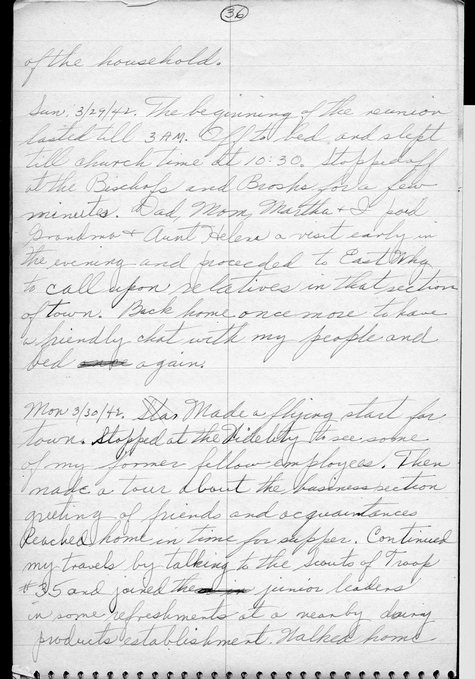 36
of the household.
Sun. 3/29/42. The beginning of the reunion
lasted till 3 AM. Off to bed and slept
till church time at 10:30. Stopped off
at the Bischofs and Brosks for a few
minutes. Dad, Mom, Martha + I paid
Grandma + Aunt Helen a visit early in
the evening and proceeded to East Whg
to call upon relatives in that section
of town. Back home once more to have
a friendly chat with my people and
bed again.
Mon 3/30/42. Made a flying start for
town. Stopped at the Fidelity to see some
of my former fellow employees. Then
made a tour about the business section
greeting of friends and acquaintances
Reached home in time for supper. Continued
my travels by talking to the scouts of Troop
#35 and joined the junior leaders
in some refreshments at a nearby dairy
products establishment. Walked home